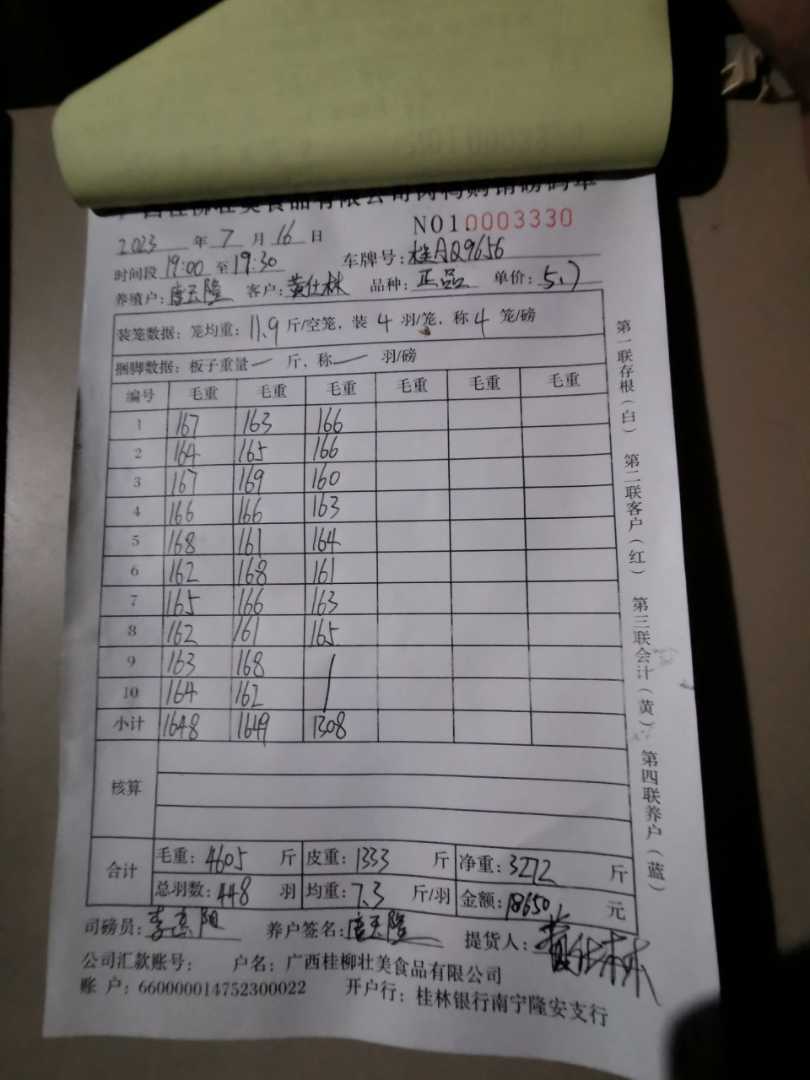 广西桂柳壮美食品有限公司肉鸭购销磅码单
NO10003330
2023 年 7 月 16 日
时间段 19:00 至 19:30 车牌号: 桂AQ9656
养殖户: 唐玉隆 客户: 黄仕林 品种: 正品 单价: 5.7
装笼数据: 笼均重: 11.9 斤/空笼, 装 4 羽/笼, 称 4 笼/磅
捆脚数据: 板子重量 — 斤, 称 — 羽/磅
编号 毛重 毛重 毛重 毛重 毛重 毛重
1 167 163 166
2 164 165 166
3 167 169 160
4 166 166 163
5 168 161 164
6 162 168 161
7 165 166 163
8 162 161 165
9 163 168 /
10 164 162
小计 1648 1649 1308
核算
合计 毛重: 4605 斤 皮重: 1333 斤 净重: 3272 斤
总羽数: 448 羽 均重: 7.3 斤/羽 金额: 18650 元
司磅员: 养户签名: 唐玉隆 提货人: 黄仕林
公司汇款账号: 户名: 广西桂柳壮美食品有限公司
账 户: 660000014752300022 开户行: 桂林银行南宁隆安支行
第一联存根(白) 第二联客户(红) 第三联会计(黄) 第四联养户(蓝)